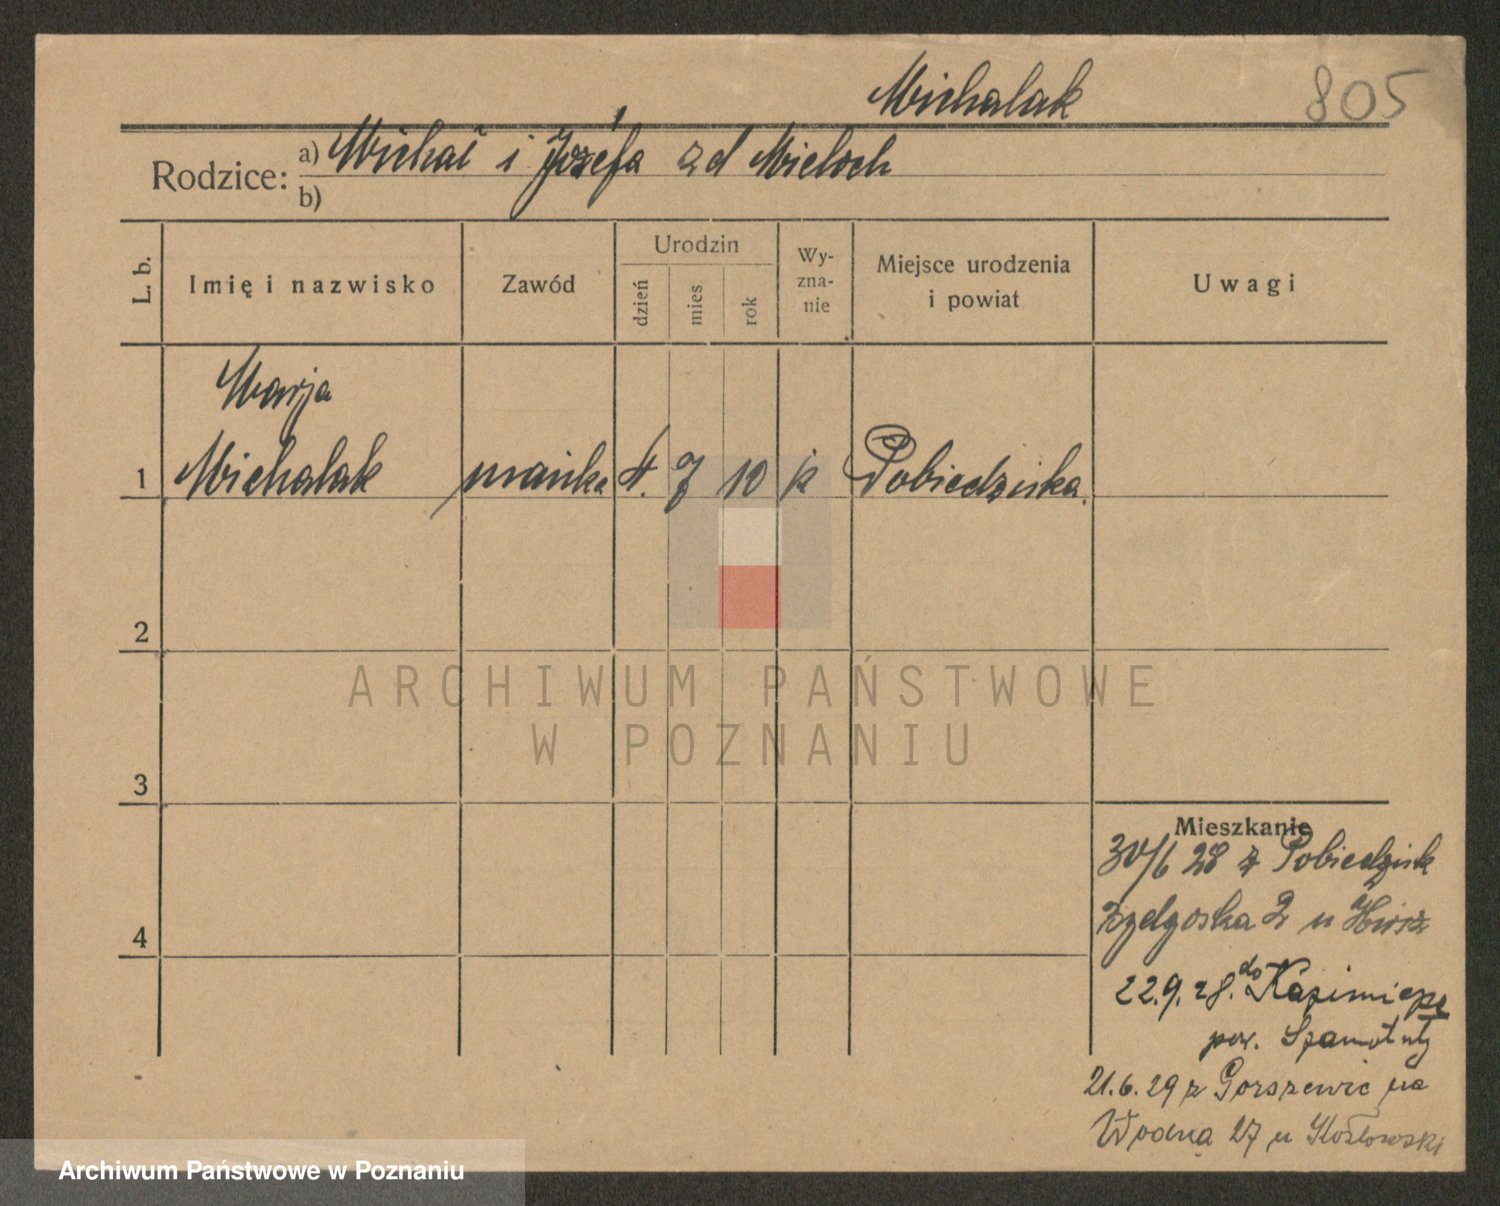 Michalak
805
Rodzice: a) Michał i Józefa zd Mieloch
b)
L. b.
Imię i nazwisko
Zawód
Urodzin
dzień
mies
rok
Wy-
zna-
nie
Miejsce urodzenia
i powiat
Uwagi
Marja
1 Michalak 4. 7 10 k Pobiedziska
2
3
4
Mieszkanie
30/6 28 z Pobiedzisk
2 u Hirsz
22.9.28. do Kazimierz
pow. Szamotuły
21.6.29 z Gorszewic na
Wodną 27 u Kozłowski
ARCHIWUM PAŃSTWOWE
W POZNANIU
Archiwum Państwowe w Poznaniu